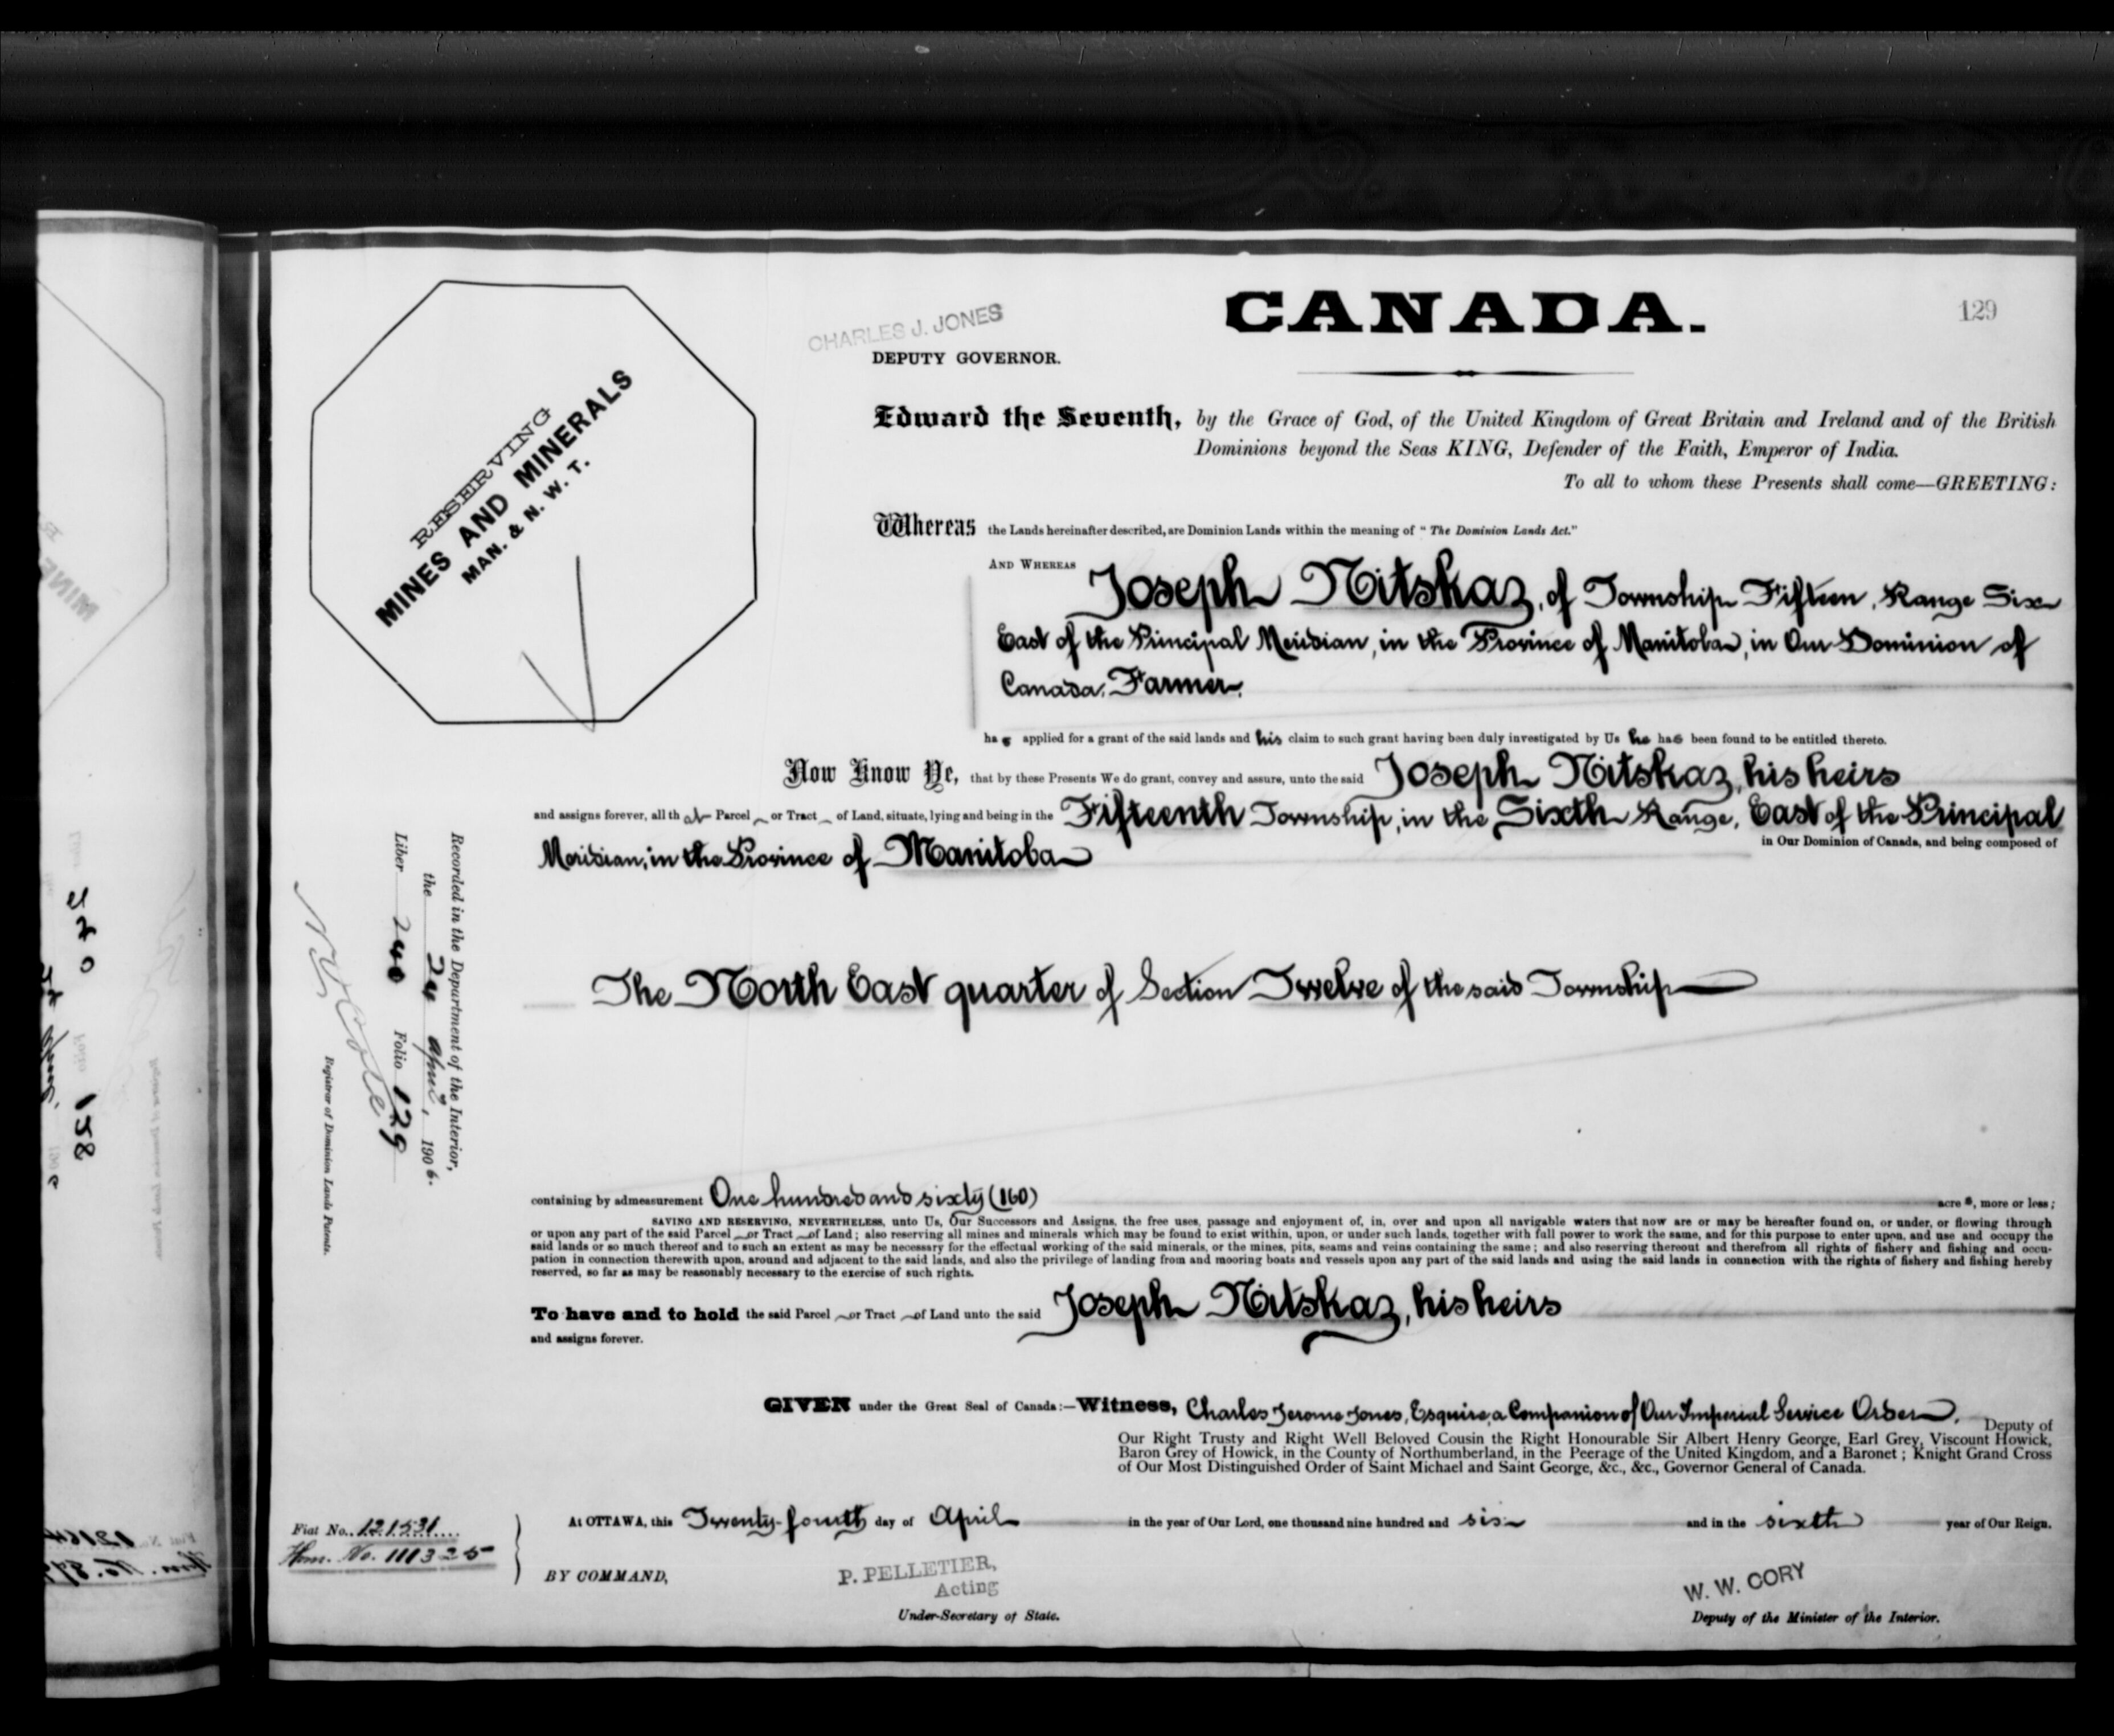 CANADA.
129
CHARLES J. JONES
DEPUTY GOVERNOR.
RESERVING
MINES AND MINERALS
MAN. & N. W. T.
Edward the Seventh, by the Grace of God, of the United Kingdom of Great Britain and Ireland and of the British
Dominions beyond the Seas KING, Defender of the Faith, Emperor of India.
To all to whom these Presents shall come—GREETING:
Whereas the Lands hereinafter described, are Dominion Lands within the meaning of "The Dominion Lands Act."
AND WHEREAS Joseph Nitskaz, of Township Fifteen, Range Six
East of the Principal Meridian, in the Province of Manitoba, in Our Dominion of
Canada, Farmer,
has applied for a grant of the said lands and his claim to such grant having been duly investigated by Us he has been found to be entitled thereto.
Now Know Ye, that by these Presents We do grant, convey and assure, unto the said Joseph Nitskaz, his heirs
and assigns forever, all that Parcel or Tract of Land, situate, lying and being in the Fifteenth Township, in the Sixth Range, East of the Principal
Meridian, in the Province of Manitoba
in Our Dominion of Canada, and being composed of
The North East quarter of Section Twelve of the said Township
Recorded in the Department of the Interior,
the 24 April, 1906.
Liber 240 Folio 129
Registrar of Dominion Lands Patents.
containing by admeasurement One hundred and sixty (160) acres, more or less;
SAVING AND RESERVING, NEVERTHELESS, unto Us, Our Successors and Assigns, the free uses, passage and enjoyment of, in, over and upon all navigable waters that now are or may be hereafter found on, or under, or flowing through
or upon any part of the said Parcel or Tract of Land; also reserving all mines and minerals which may be found to exist within, upon, or under such lands, together with full power to work the same, and for this purpose to enter upon, and use and occupy the
said lands or so much thereof and to such an extent as may be necessary for the effectual working of the said minerals, or the mines, pits, seams and veins containing the same; and also reserving thereout and therefrom all rights of fishery and fishing and occu-
pation in connection therewith upon, around and adjacent to the said lands, and also the privilege of landing from and mooring boats and vessels upon any part of the said lands and using the said lands in connection with the rights of fishery and fishing hereby
reserved, so far as may be reasonably necessary to the exercise of such rights.
To have and to hold the said Parcel or Tract of Land unto the said Joseph Nitskaz, his heirs
and assigns forever.
GIVEN under the Great Seal of Canada:—Witness, Charles Jerome Jones, Esquire, a Companion of Our Imperial Service Order, Deputy of
Our Right Trusty and Right Well Beloved Cousin the Right Honourable Sir Albert Henry George, Earl Grey, Viscount Howick,
Baron Grey of Howick, in the County of Northumberland, in the Peerage of the United Kingdom, and a Baronet; Knight Grand Cross
of Our Most Distinguished Order of Saint Michael and Saint George, &c., &c., Governor General of Canada.
At OTTAWA, this Twenty-fourth day of April in the year of Our Lord, one thousand nine hundred and six and in the sixth year of Our Reign.
Fiat No. 121531
Hm. No. 111325
BY COMMAND,
P. PELLETIER,
Acting
Under-Secretary of State.
W. W. CORY
Deputy of the Minister of the Interior.